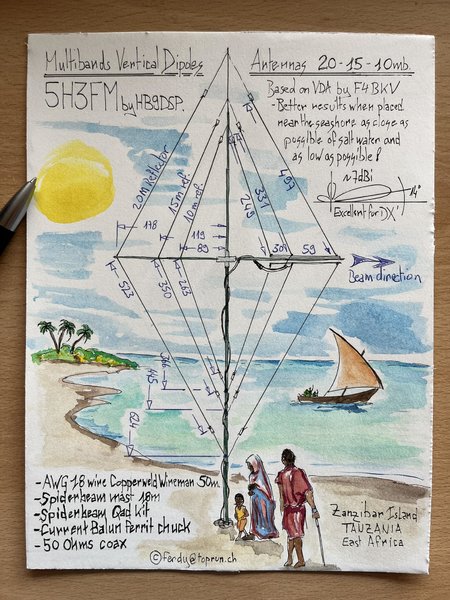 Multibands Vertical Dipoles
Antennas 20-15-10mb.
5H3FM by HB9DSP.
Based on VDA by F4BKV
-Better results when placed
near the seashore as close as
possible of salt water and
as low as possible!
~7dBi
"Excellent for DX"
20m Reflector
15m ref.
10m ref.
249
331
497
178
119
89
30
59
Beam direction
523
350
263
316
445
624
-AWG 18 wire Copperweld Wireman 50m.
-Spiderbeam mast 18m
-Spiderbeam Quad kit
-Current Balun Ferrit chuck
-50 Ohms coax
Zanzibar Island
TANZANIA
East Africa
©ferdy@toprun.ch